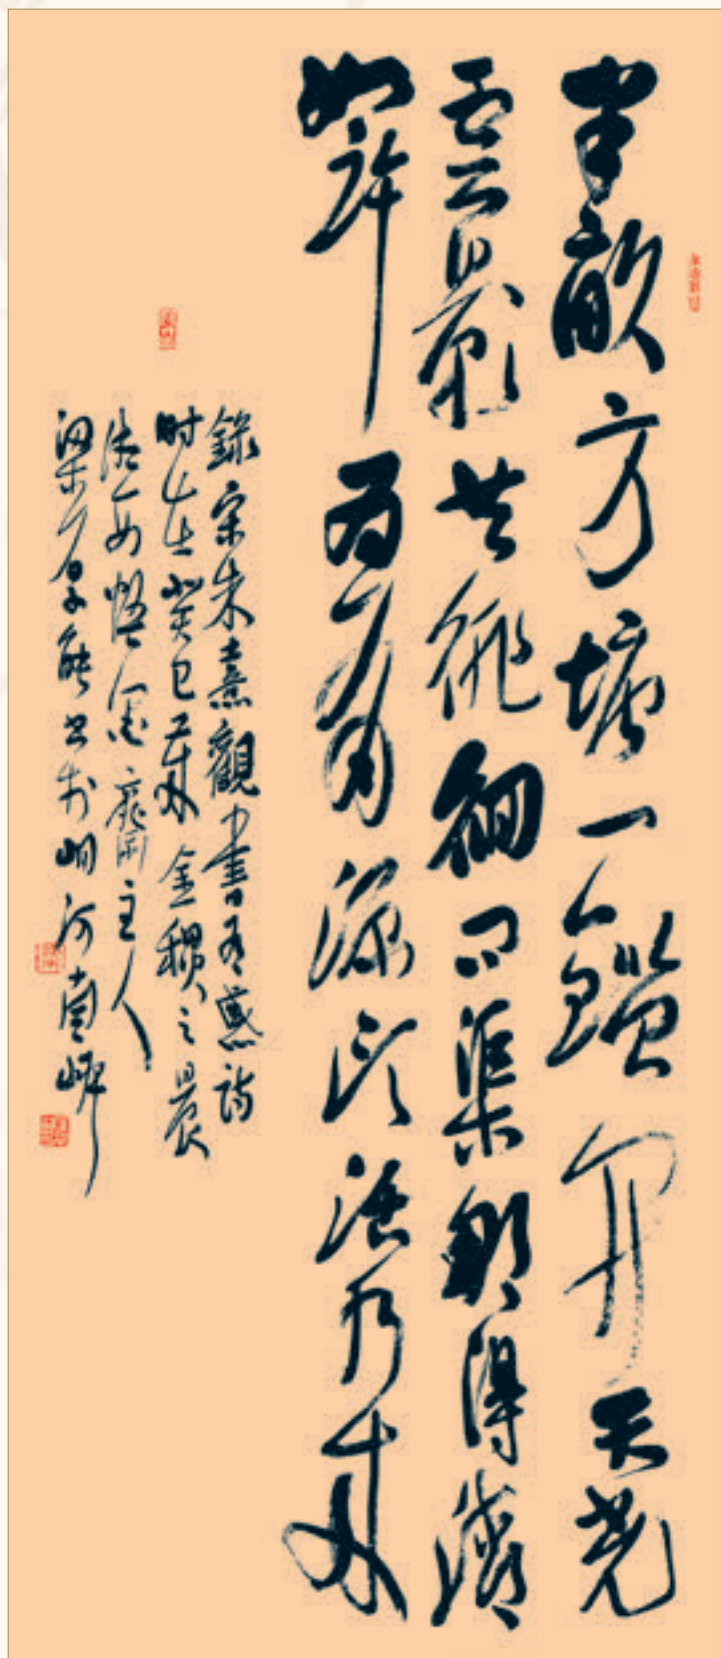 半畝方塘一鑑開天光
雲影共徘徊問渠那得清
如許為有源頭活水來
錄宋朱熹觀書有感詩
时在癸巳金穗之晨
悟墨齋主人
梁能書於峒河南岸